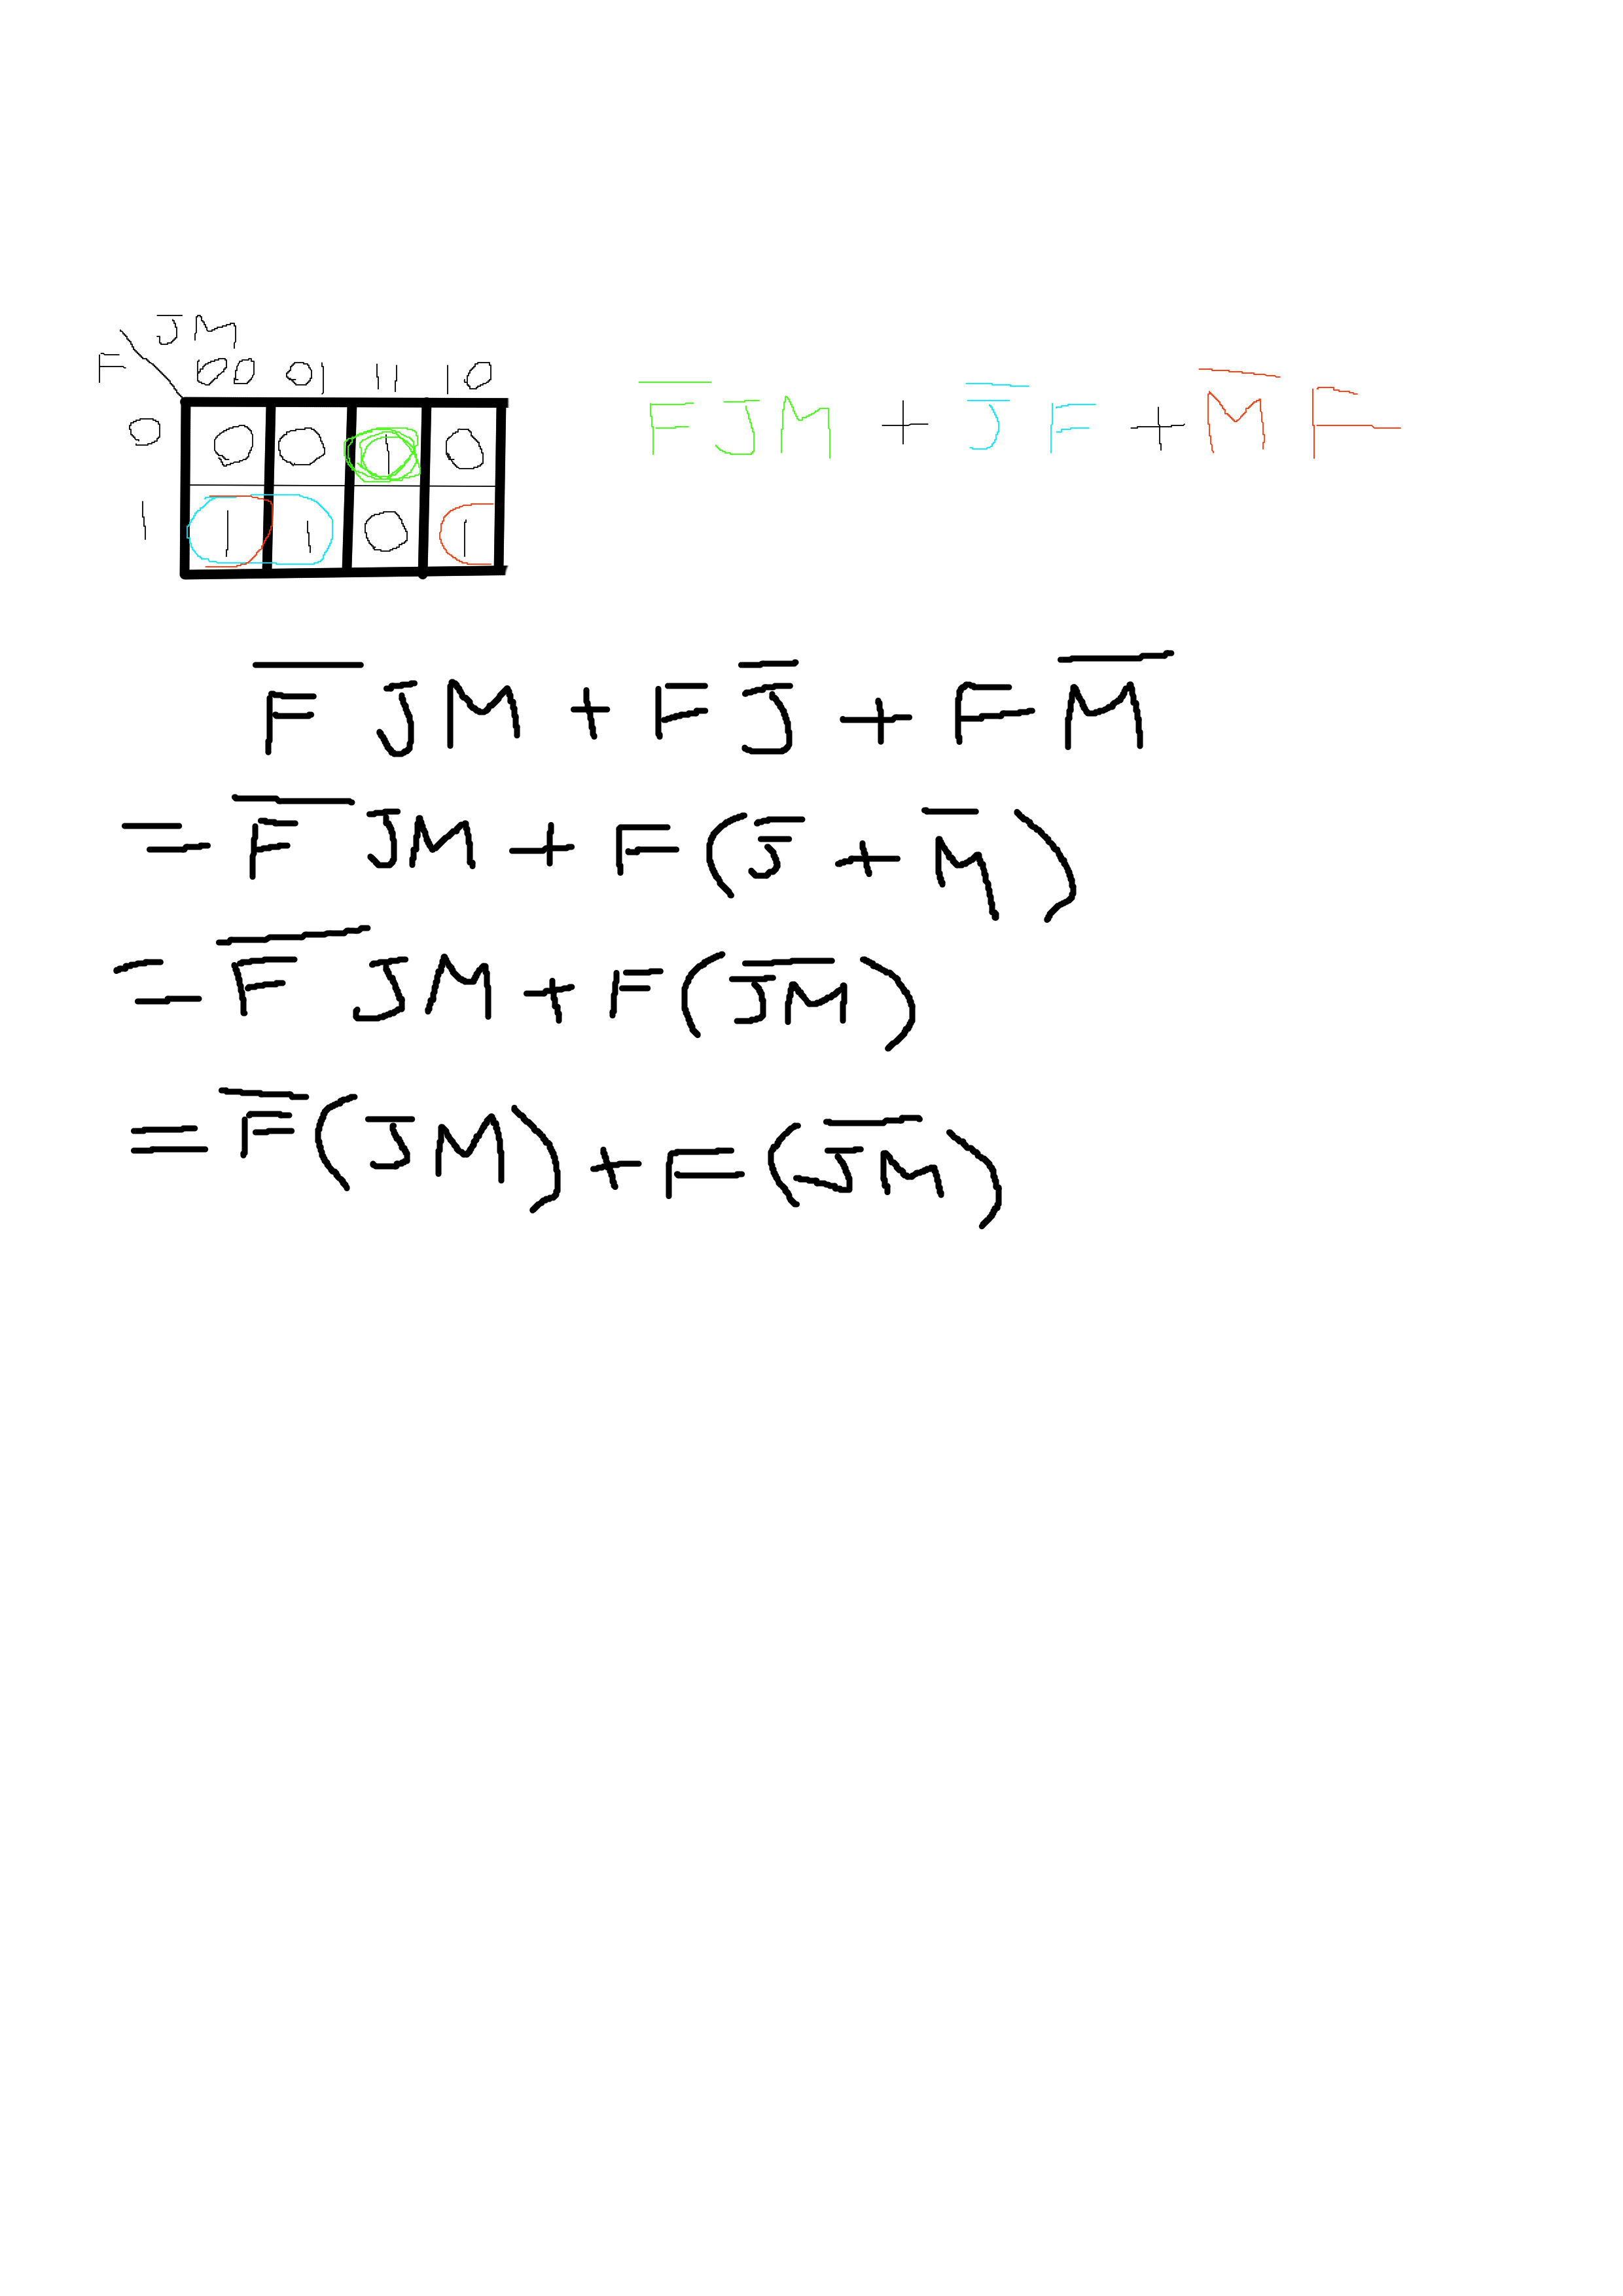 JM
F 00 01 11 10
0 0 0 1 0
1 1 1 0 1
F̅JM + J̅F + M̅F
F̅JM + FJ̅ + FM̅
= F̅JM + F(J̅ + M̅)
= F̅JM + F(J̅M̅)
= F̅(JM) + F(J̅M̅)